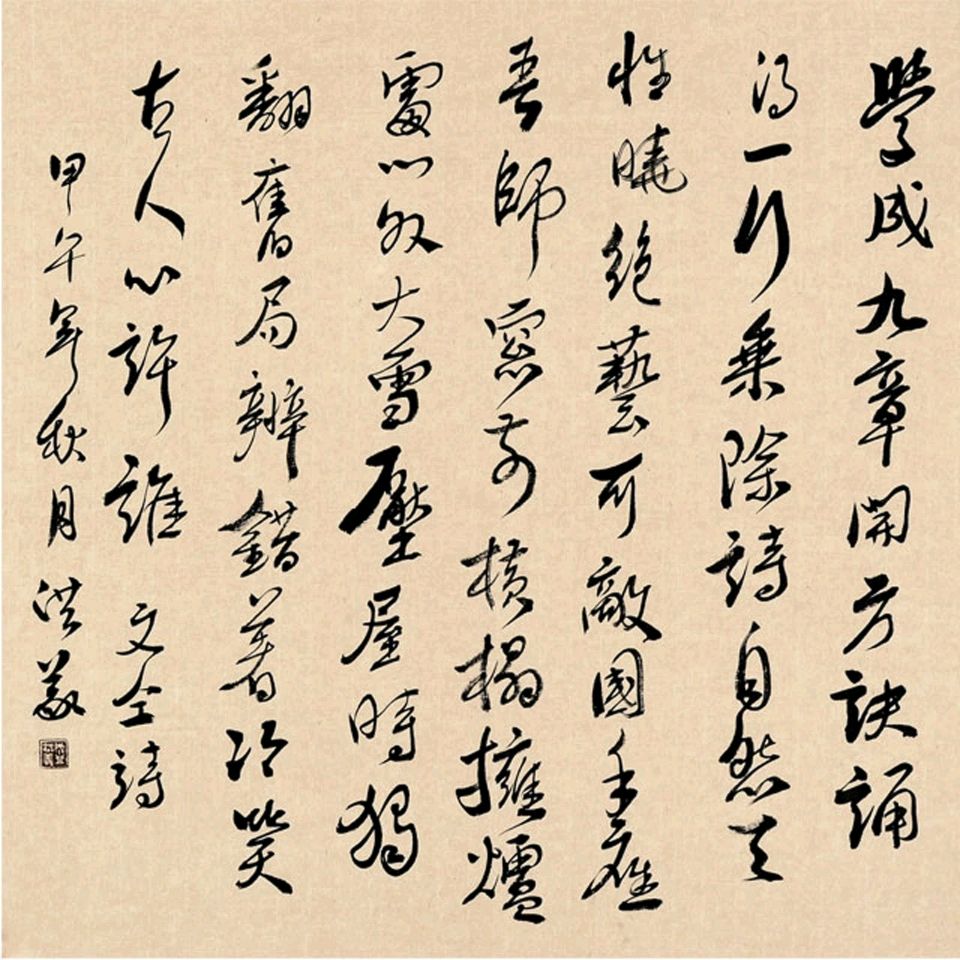 學成九章開方訣誦
得一行乘除詩自然天
性曉絕藝可敵國手應
吾師窗前橫榻擁爐
處門外大雪壓屋時獨
翻舊局辨錯著冷笑
古人心許誰 文仝詩
甲午年秋月洪義